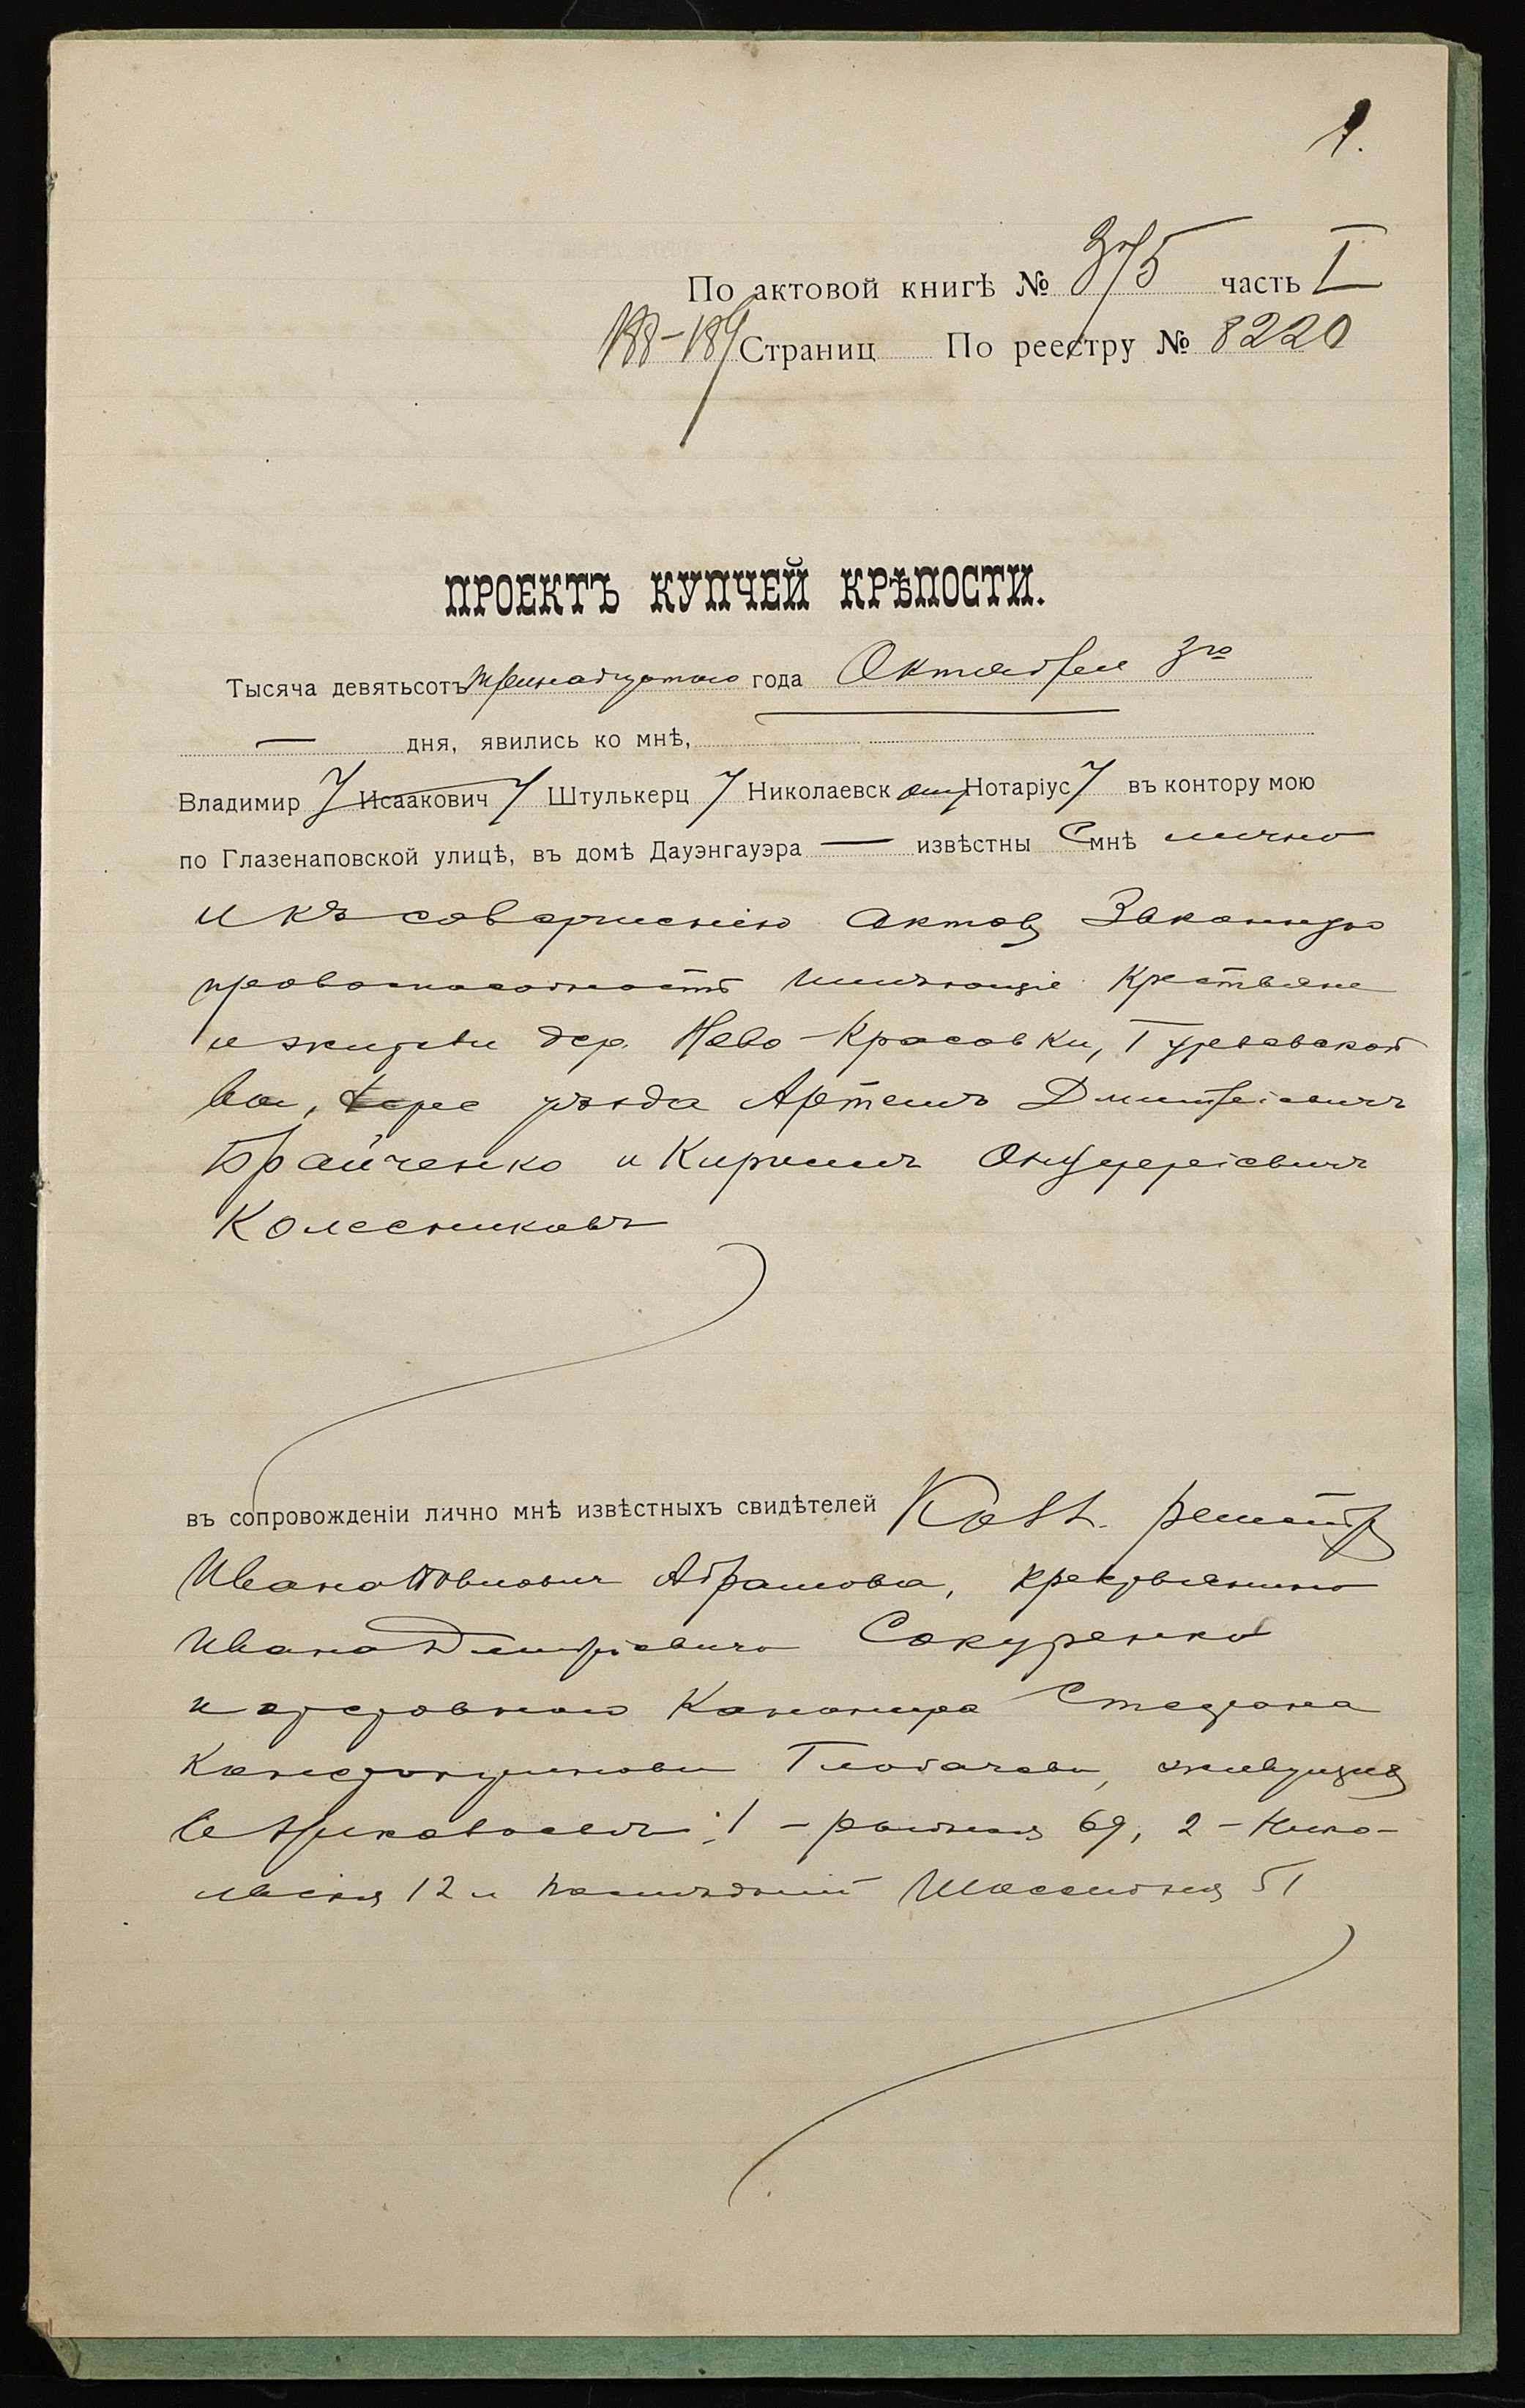 1.
По актовой книгѣ № 375 часть I
188-189 Страниц По реестру № 8220
ПРОЕКТЪ КУПЧЕЙ КРѢПОСТИ.
Тысяча девятьсотъ тринадцатого года Октября 3го
— дня, явились ко мнѣ,
Владимир у Исаакович у Штулькерц у Николаевск ому Нотаріус у въ контору мою
по Глазенаповской улицѣ, въ домѣ Дауэнгауэра — извѣстны е мнѣ лично
и къ совершенію актовъ законную
правоспособность имѣющіе крестьяне
и жители дер. Ново-Красовки,
уѣзда Артемъ Дмитріевичъ
Брайченко и Кириллъ Онуфріевичъ
Колесниковъ
въ сопровожденіи лично мнѣ извѣстныхъ свидѣтелей Колл. регистр.
Ивана Абрамова, крестьянина
Ивана Дмитріевича Сокуренко
и Канонира Стефана
Константинова Глобачева, живущихъ
въ Николаевѣ: 1 - Рыбная 69, 2 - Нико-
лаевская 12 и послѣдній Шоссейная 51